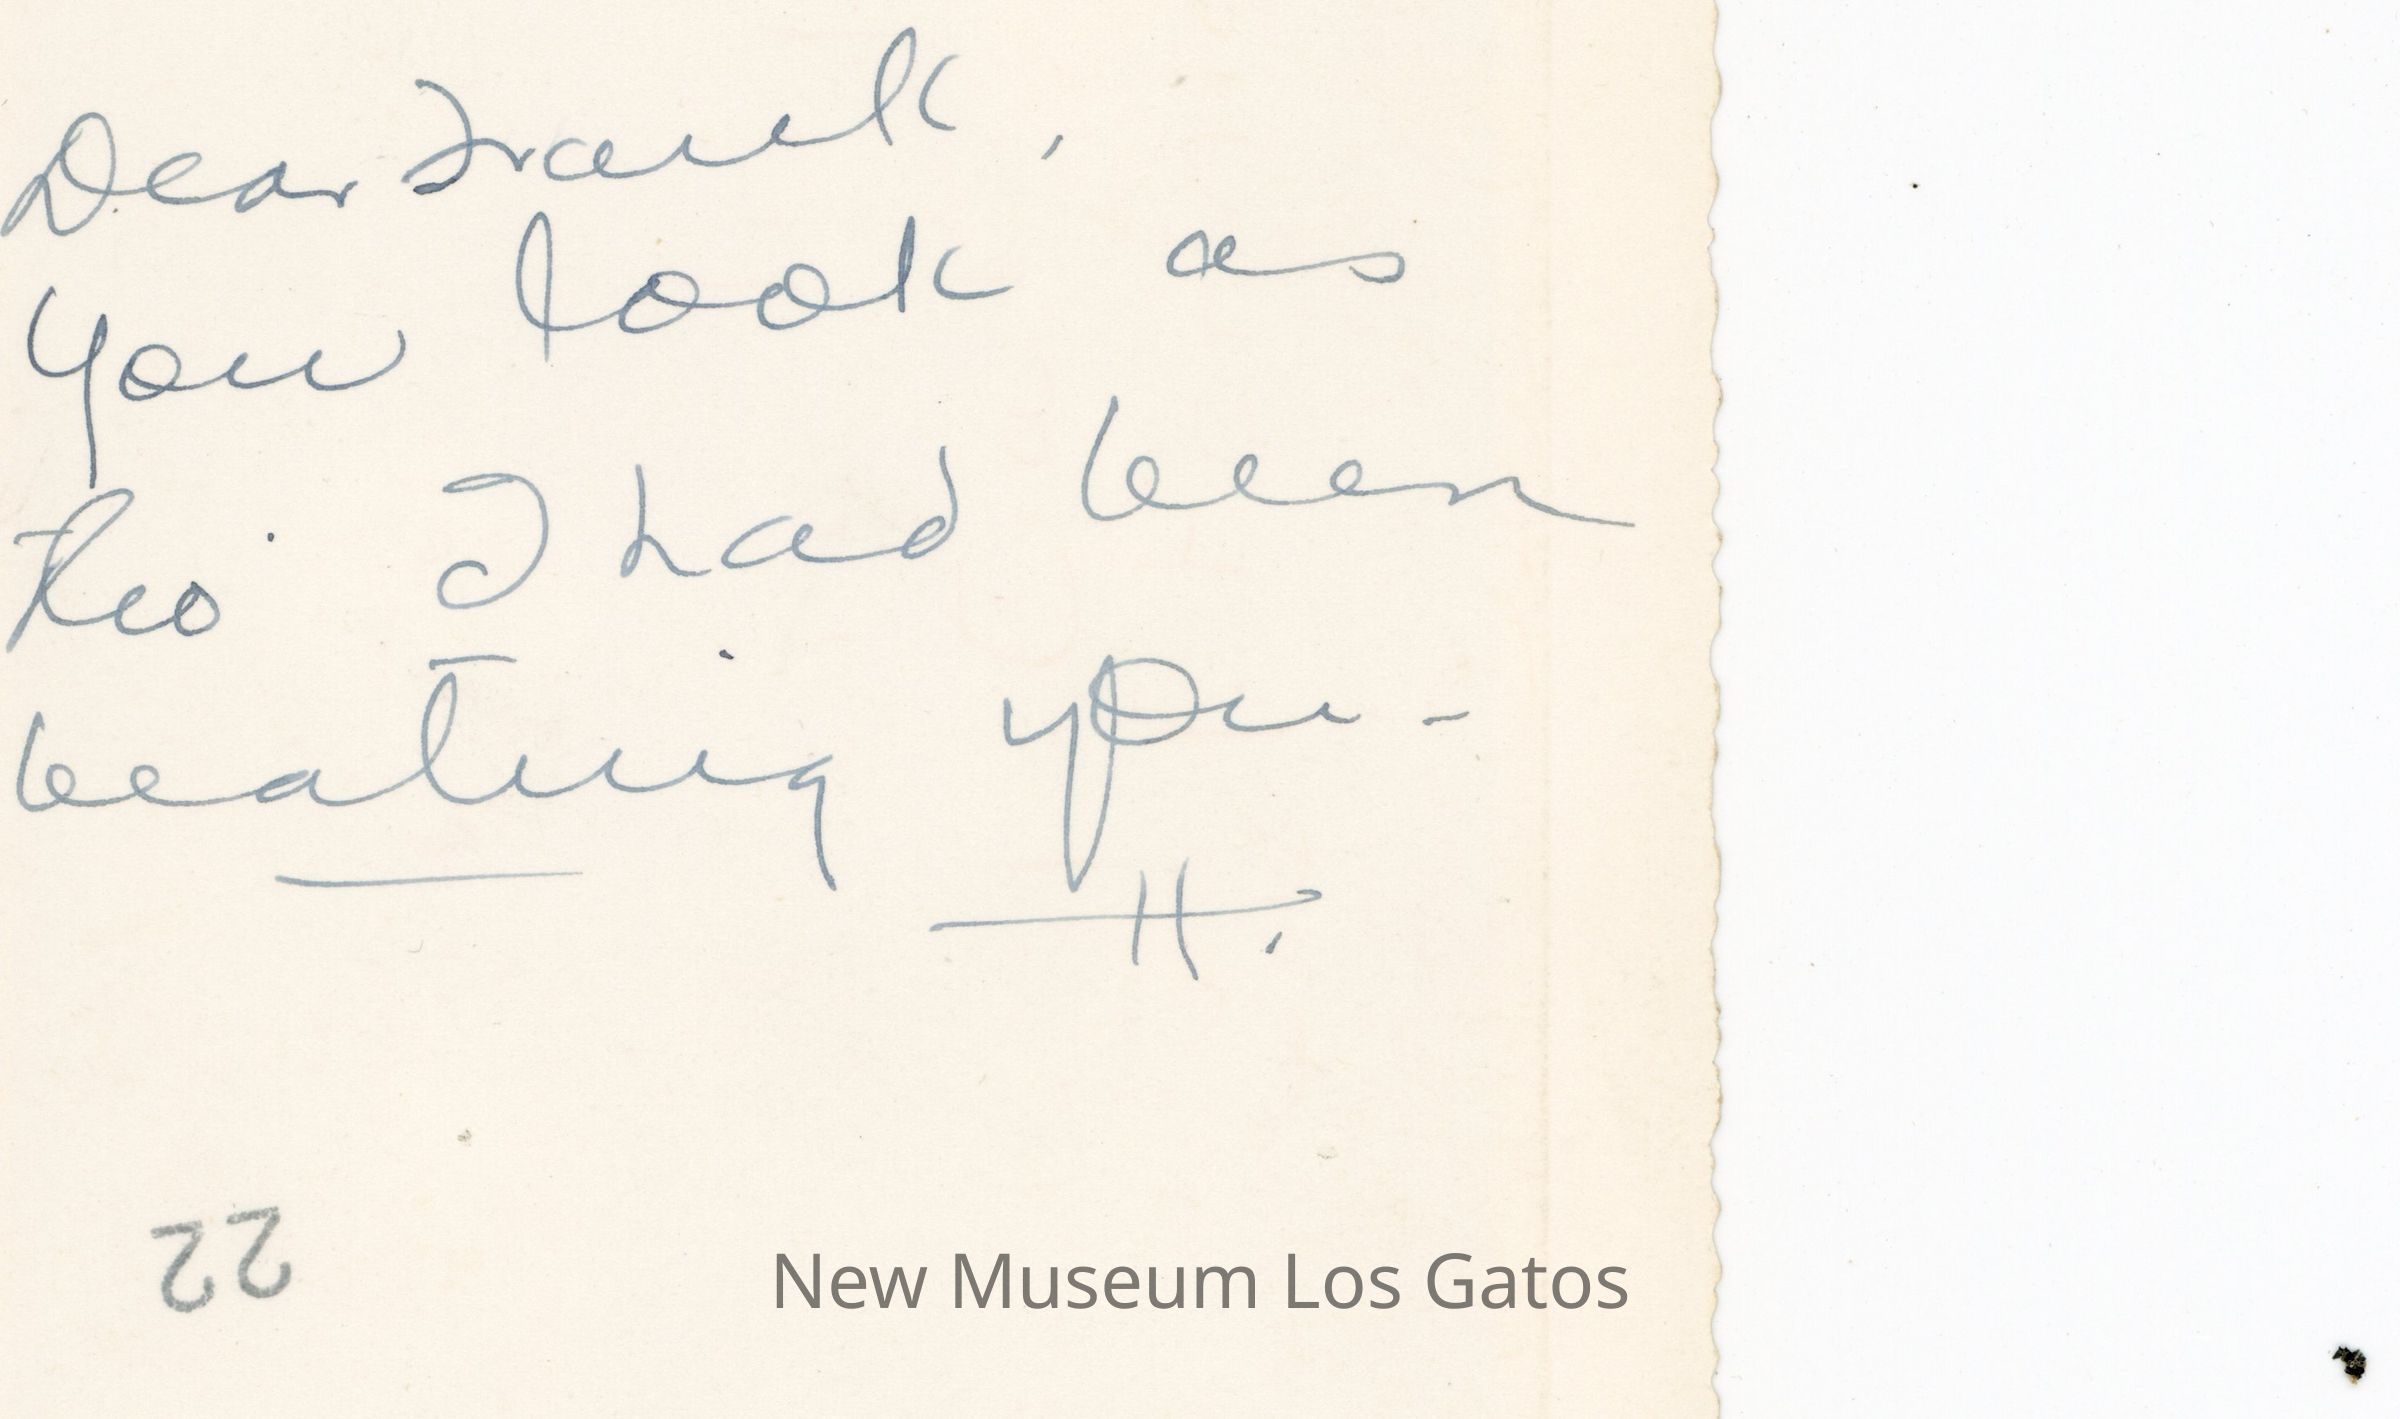 Dear Frank,
You look as
tho' I had been
beating you -
H.
22
New Museum Los Gatos